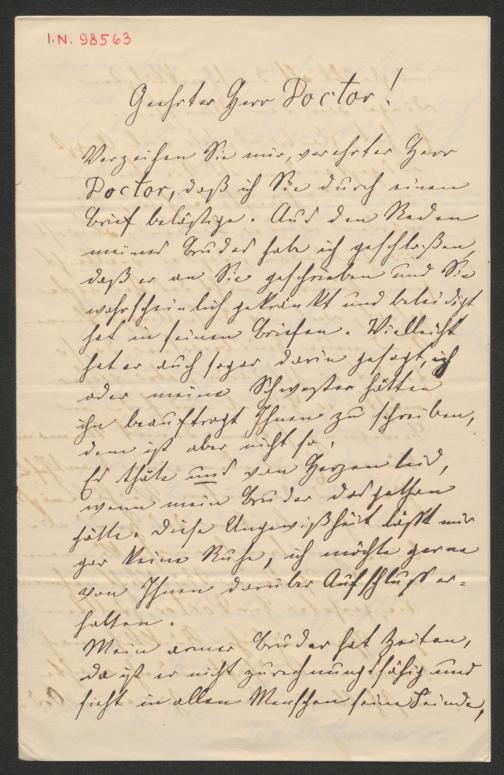 I.N. 98563
Geehrter Herr Doctor!
Verzeihen Sie mir, verehrter Herr
Doctor, daß ich Sie durch einen
Brief belästige. Aus den Reden
meines Bruders habe ich geschloßen,
daß er an Sie geschrieben und Sie
wahrscheinlich gekränkt und beleidigt
hat in seinen Briefen. Vielleicht
hat er auch sogar darin gesagt, ich
oder meine Schwester hätten
ihn beauftragt Ihnen zu schreiben,
dem ist aber nicht so.
Es thäte uns von Herzen leid,
wenn mein Bruder das gethan
hätte. Diese Ungewißheit läßt mir
gar keine Ruhe, ich möchte gerne
von Ihnen darüber Aufschluß er=
halten.
Mein armer Bruder hat Zeiten,
da ist er nicht zurechnungsfähig und
sieht in allen Menschen seine Feinde,